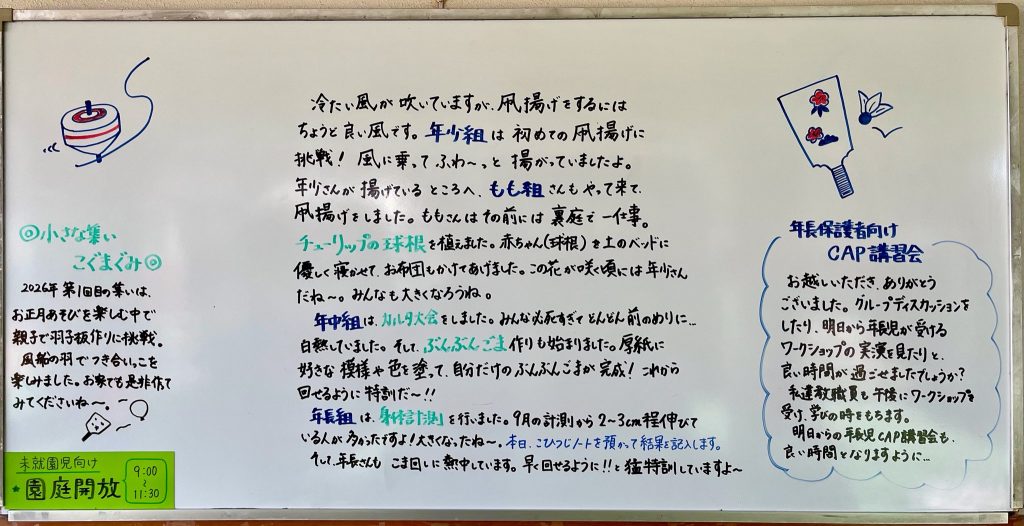 冷たい風が吹いていますが、凧揚げをするには
ちょうど良い風です。年少組は初めての凧揚げに
挑戦！風に乗ってふわ〜っと揚がっていましたよ。
年少さんが揚げているところへ、もも組さんもやって来て、
凧揚げをしました。ももさんはその前には裏庭で一仕事。
チューリップの球根を植えました。赤ちゃん(球根)を土のベッドに
優しく寝かせて、お布団もかけてあげました。この花が咲く頃には年少さん
だね〜。みんなも大きくなろうね。
年中組は、カルタ大会をしました。みんな必死すぎてどんどん前のめりに…
白熱していました。そして、ぶんぶんごま作りも始まりました。厚紙に
好きな模様や色を塗って、自分だけのぶんぶんごまが完成！これから
回せるように特訓だ〜!!
年長組は、身体計測を行いました。9月の計測から2〜3cm程伸びて
いる人が多かったですよ！大きくなったね〜。本日、こひつじノートを預かって結果を記入します。
そして、年長さんもこま回しに熱中しています。早く回せるように!!と猛特訓していますよ〜
◎小さな集い
こぐまぐみ◎
2026年第1回目の集いは、
お正月あそびを楽しむ中で
親子で羽子板作りに挑戦。
風船の羽でつき合いっこを
楽しみました。お家でも是非作って
みてくださいね〜。
未就園児向け
★園庭開放
9:00
〜
11:30
年長保護者向け
CAP講習会
お越しいただき、ありがとう
ございました。グループディスカッションを
したり、明日から年長児が受ける
ワークショップの実演を見たりと、
良い時間が過ごせましたでしょうか？
私達教職員も午後にワークショップを
受け、学びの時をもちます。
明日からの年長児CAP講習会も、
良い時間となりますように…